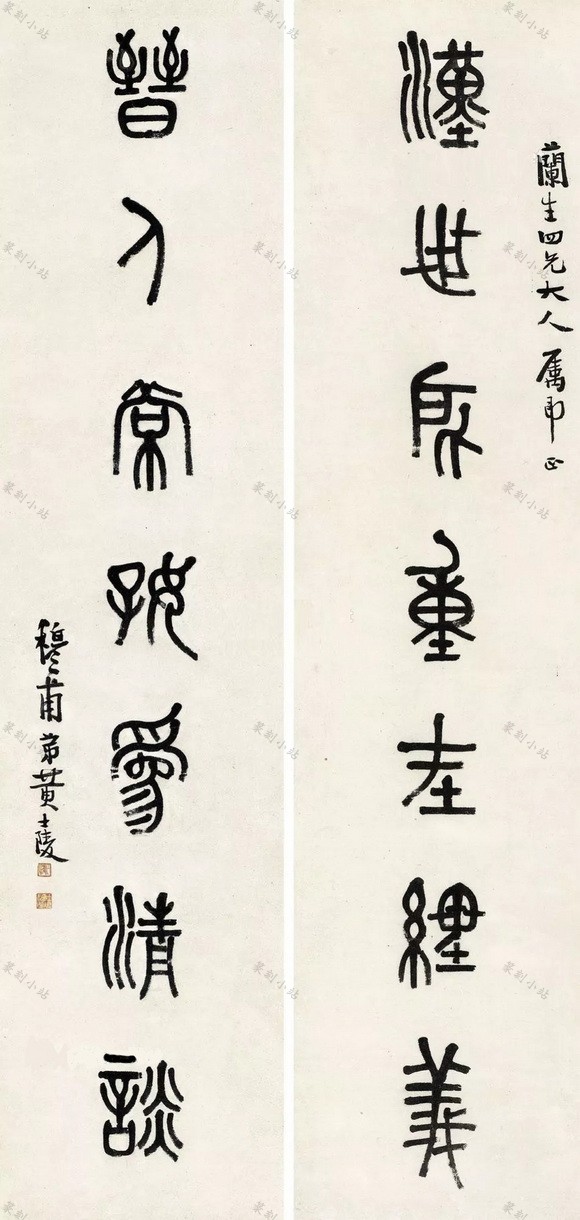 蘭生四兄大人屬即正
漢世所重在經義
晉人常好為清談
穆甫弟黃士陵
篆刻小站